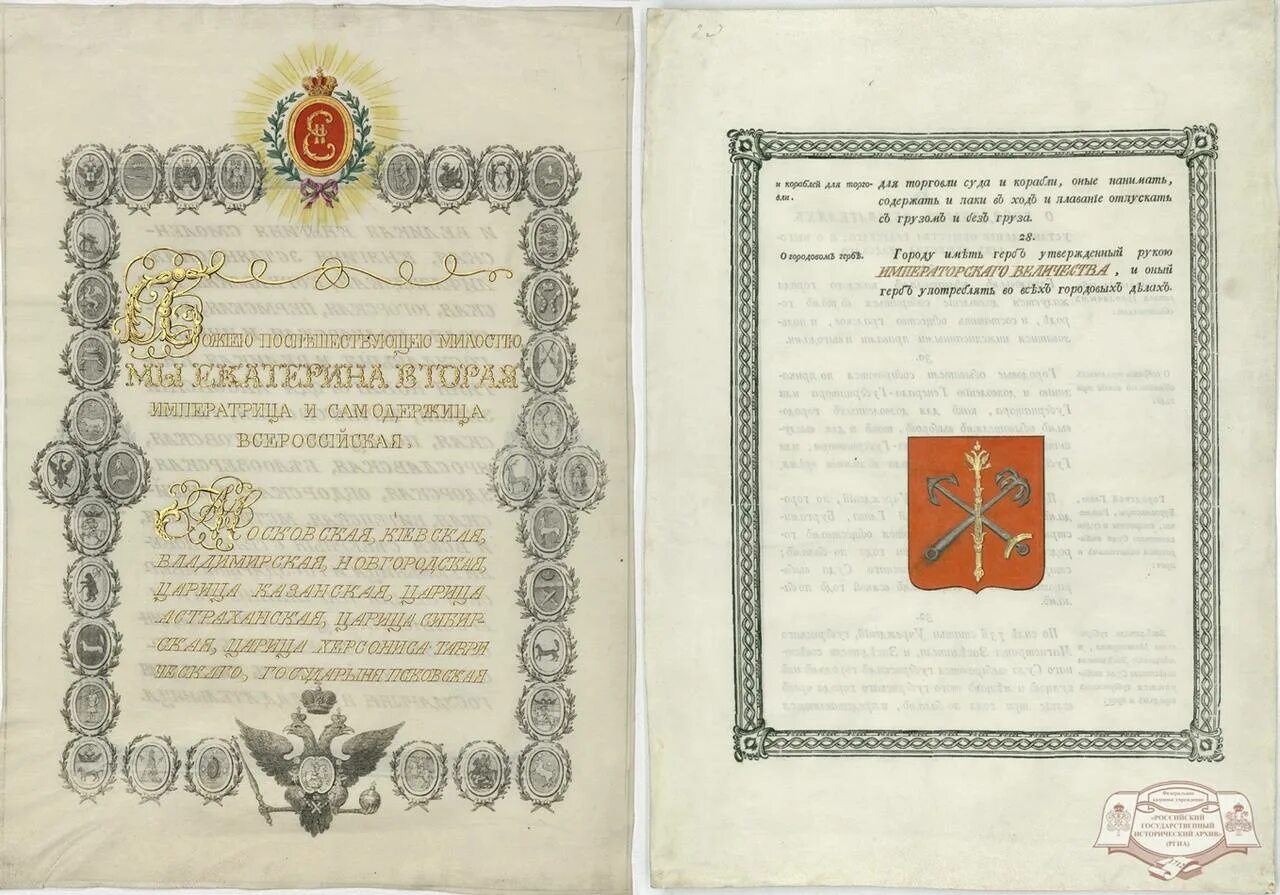 БОЖІЕЮ ПОСПѢШЕСТВУЮЩЕЮ МИЛОСТІЮ
МЫ ЕКАТЕРИНА ВТОРАЯ
ИМПЕРАТРИЦА И САМОДЕРЖИЦА
ВСЕРОССІЙСКАЯ,
МОСКОВСКАЯ, КІЕВСКАЯ,
ВЛАДИМИРСКАЯ, НОВГОРОДСКАЯ,
ЦАРИЦА КАЗАНСКАЯ, ЦАРИЦА
АСТРАХАНСКАЯ, ЦАРИЦА СИБИР-
СКАЯ, ЦАРИЦА ХЕРСОНИСА ТАВРИ
ЧЕСКАГО, ГОСУДАРЫНЯ ПСКОВСКАЯ
и кораблей для торго-
вли.
для торговли суда и корабли, оные нанимать,
содержать и паки въ ходъ и плаваніе отпускать
съ грузомъ и безъ груза.
28.
О городовомъ гербѣ.
Городу имѣть гербъ утвержденный рукою
ИМПЕРАТОРСКАГО ВЕЛИЧЕСТВА, и оный
гербъ употреблять во всѣхъ городовыхъ дѣлахъ.
Федеральное
казенное учреждение
«РОССИЙСКИЙ
ГОСУДАРСТВЕННЫЙ
ИСТОРИЧЕСКИЙ АРХИВ»
(РГИА)